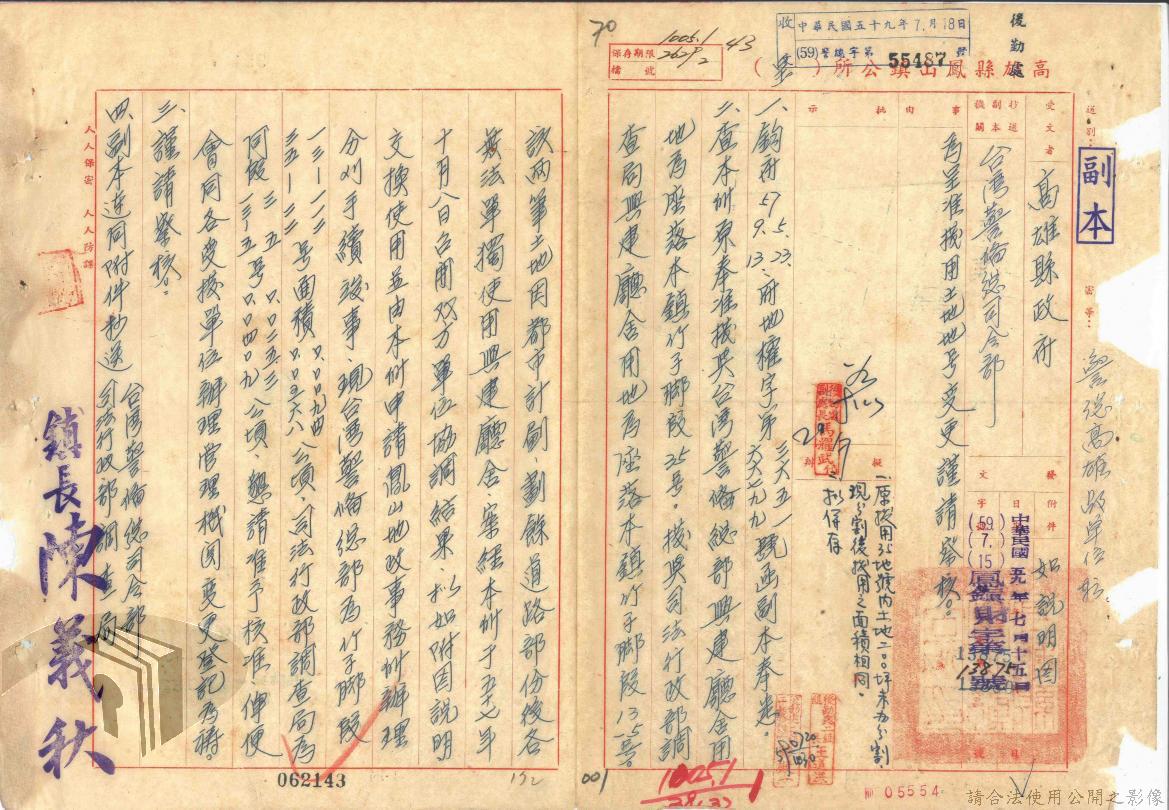 後勤處
收
中華民國五十九年7.月18日
(59)警總字第55487號
保存期限
檔號
10051
2629
2
43
70
高雄縣鳳山鎮公所（）
送別：
副本
密等：
受文者
高雄縣政府
抄送副本機關
台灣警備總司令部
事由
為呈准撥用土地地号变更謹請詧核。
批示
擬辦
一、原撥用35地號內土地二〇〇坪未办分割，
現分割後撥用之面積相同。
二、拟保存
附件
如說明圖
發文
日
中華民國五九年七月十五日
(59)
7.
15
鳳鎮財字第
13875
號
一、鈞府57 9.5. 13.23.府地權字第三六五一 六六七九九號函副本奉悉。
二、查本所原奉准撥與台灣警備總部興建廳舍用
地為座落本鎮竹子腳段35号。撥與司法行政部調
查局興建廳舍用地為座落本鎮竹子腳段13-5号。
該兩筆土地因都市計劃，劃餘道路部份後各
無法單獨使用興建廳舍，案經本所于五十七年
十月八日召開双方單位協調結果，拟如附因說明
交換使用並由本所申請鳳山地政事務所辦理
分刈手續竣事，現台灣警備總部為竹子腳段
号面積
公頃，司法行政部調查局為
公頃，懇請准予核准俾便
會同各受撥單位辦理管理機関变更登記為禱。
三、謹請詧核。
四、副本連同附件抄送台灣警備總司令部 司法行政部調查局
鎮長陳義秋
人人保密 人人防諜
062143
132
001
10051
05554
請合法使用公開之影像